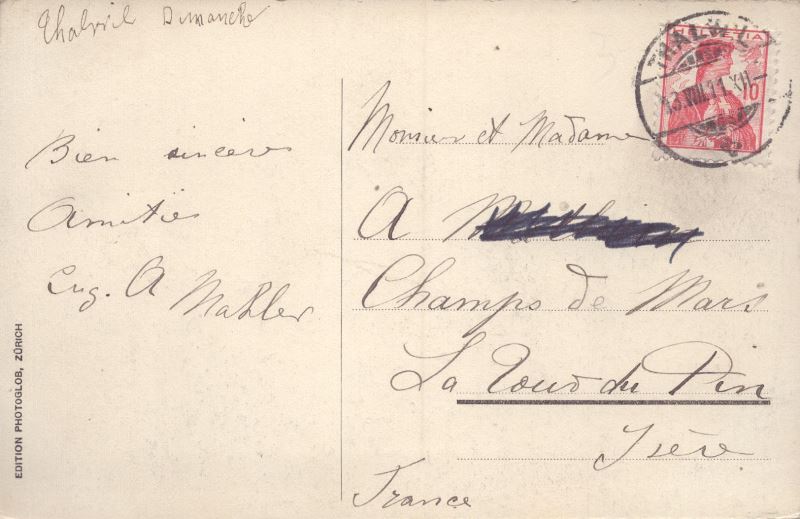 Thalwil Dimanche
Bien sincères
Amitiés
Eug. A Mahler
EDITION PHOTOGLOB, ZÜRICH
HELVETIA
10
THALWIL
13.VIII.11.XII-
Monsieur et Madame
A
Champs de Mars
La Tour du Pin
Isère
France